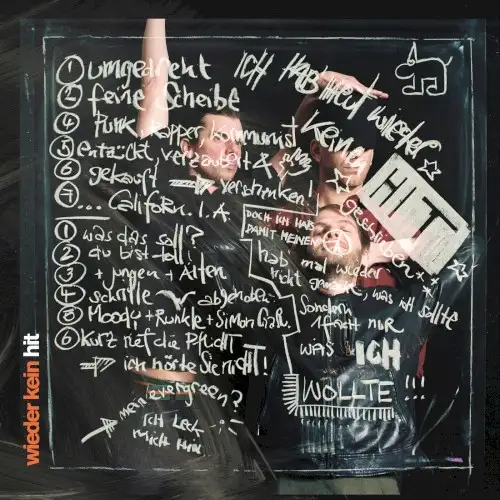 ① umgedreht
② feine Scheibe
④ Punk, Rapper, Kommunist
⑤ entzückt, verzaubert &
⑥ gekauft
verstunken!
⑦ ... Californ. I. A.
① was das soll?
② du bist toll!
③ + Jungen + Alten
④ schrille
abgehoben
⑤ Moody + Runkle + Simon
⑥ kurz rief die Pflicht
ich hörte sie nicht!
mein evergreen?
ich leck
mich
ICH HAB heut wieder
keinen
HIT
geschrieben
DOCH ICH HAB
DAMIT MEINEN
hab mal wieder
nicht gemacht, was ich sollte
Sondern
einfach nur
was ICH
WOLLTE!!!
wieder kein hit